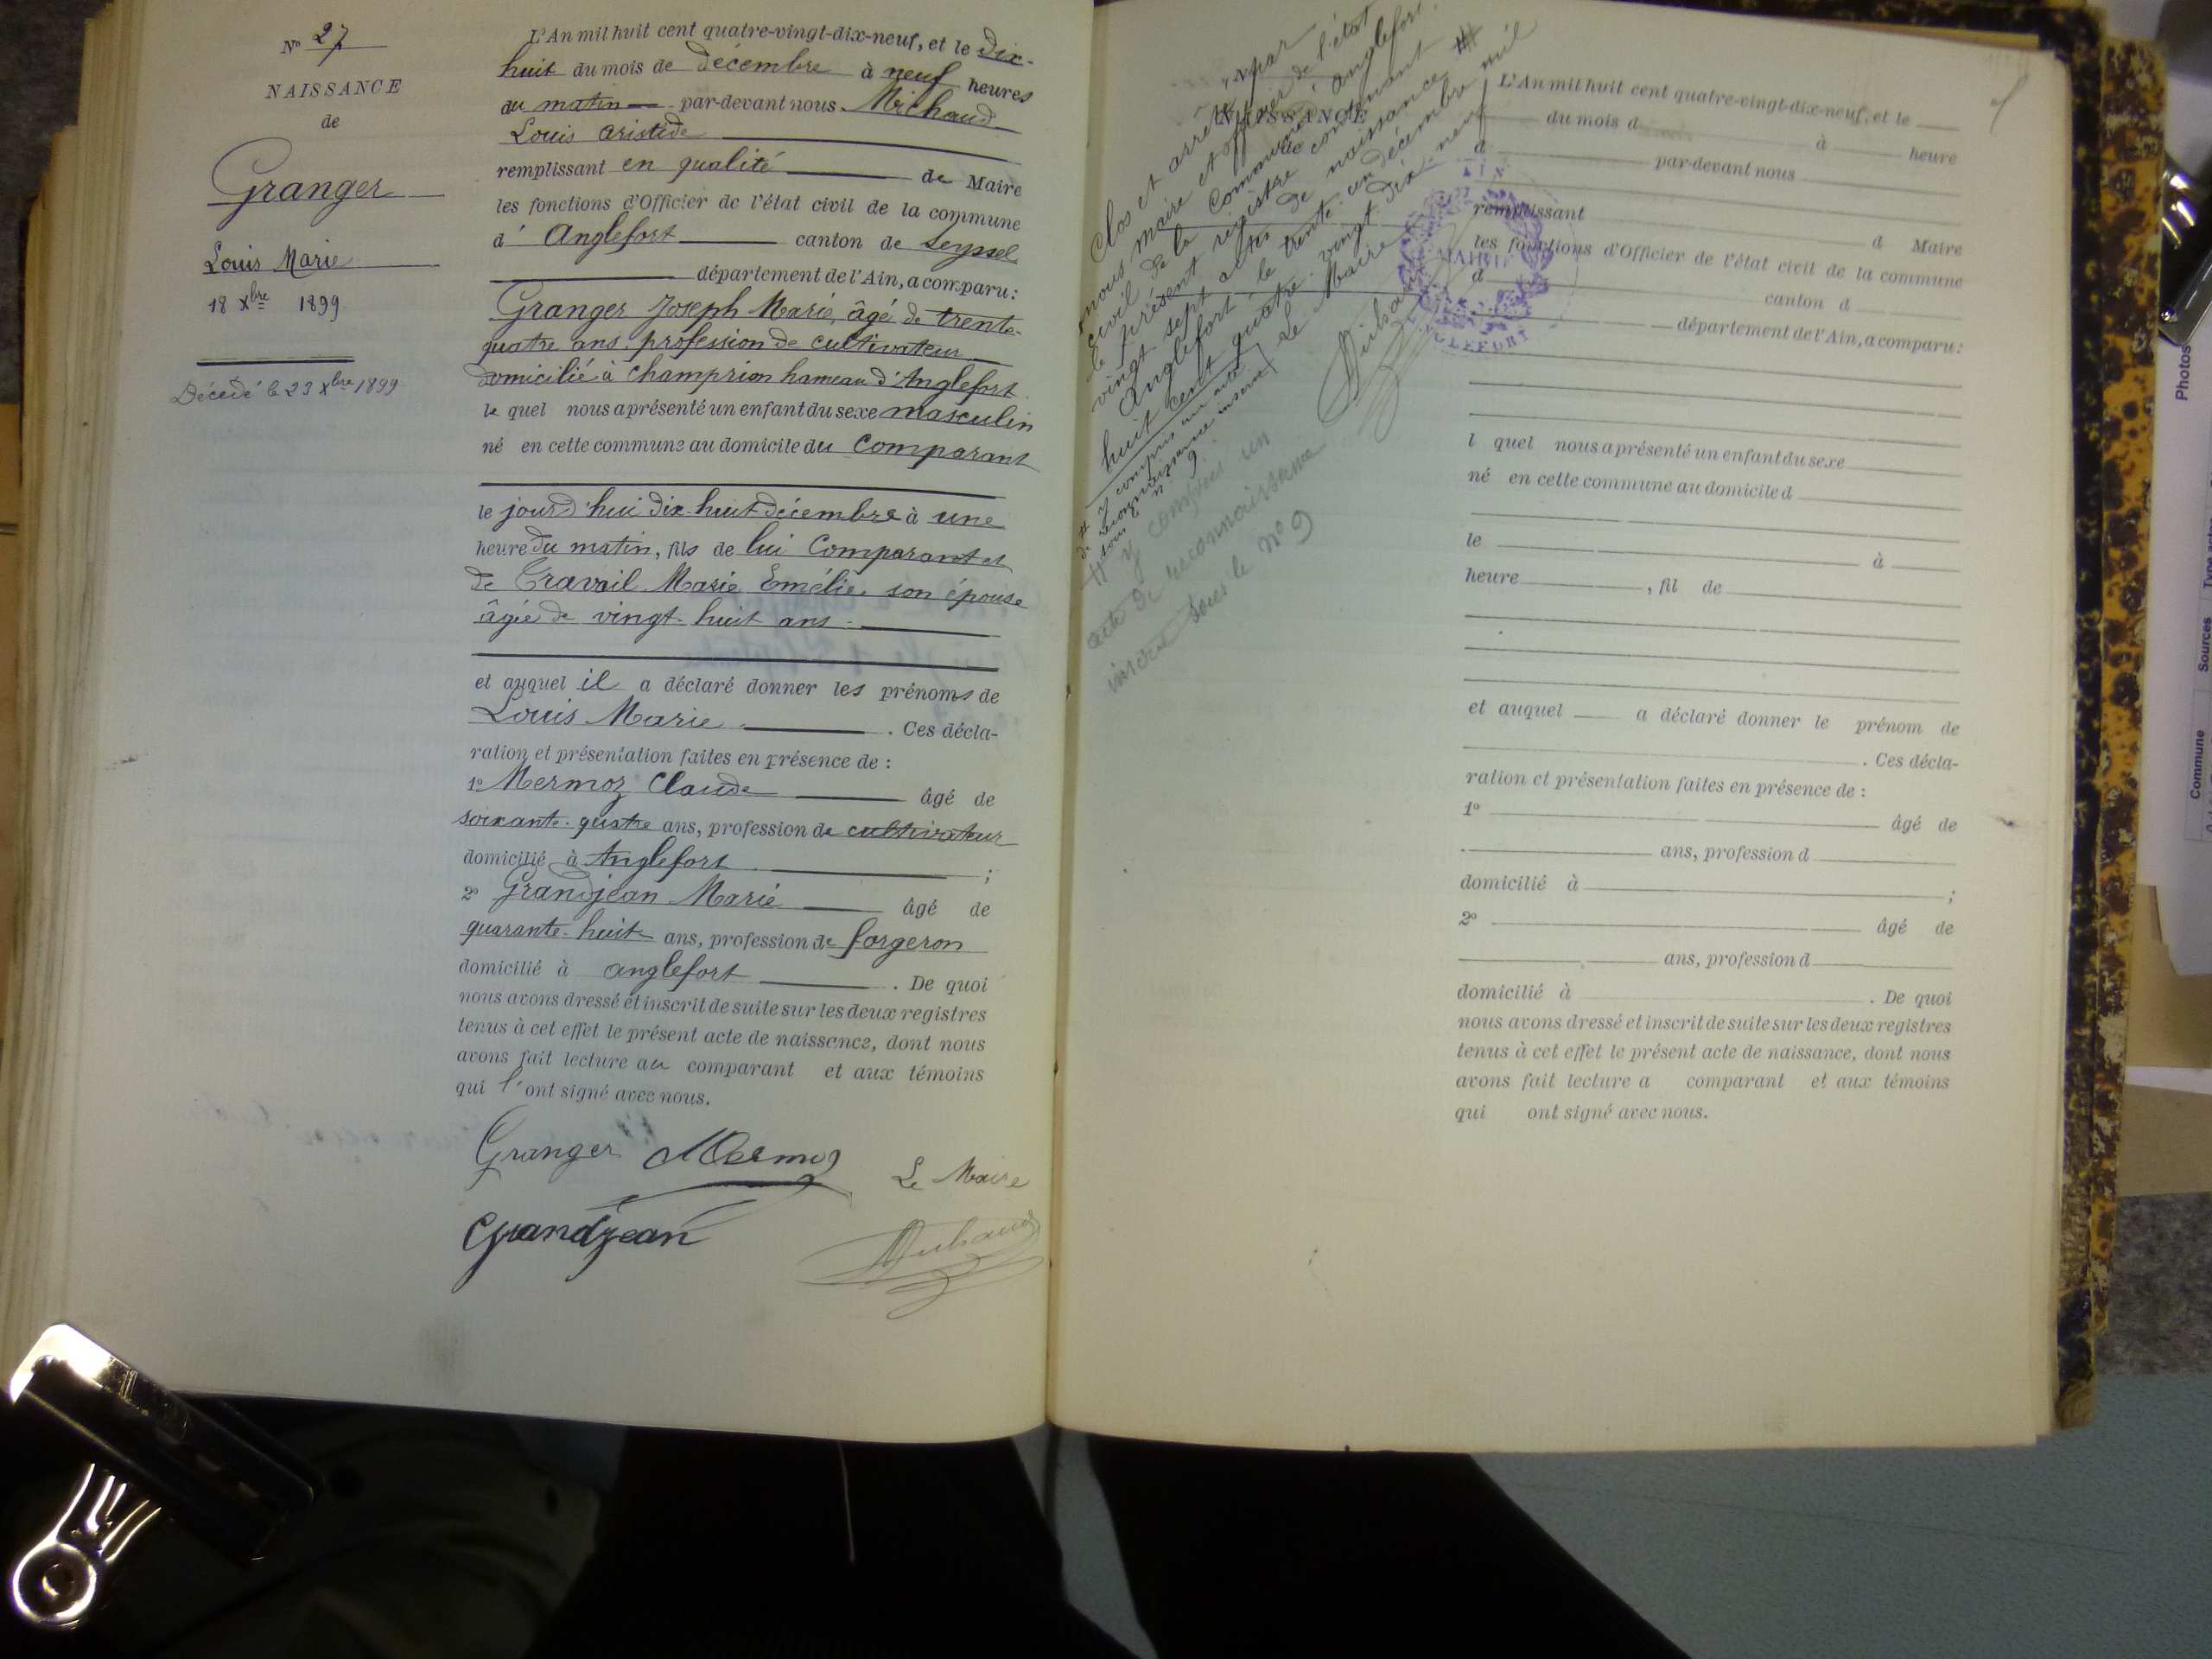 N° 27
NAISSANCE
de
Granger
Louis Marie
18 Xbre 1899
Décédé le 23 Xbre 1899
L'An mil huit cent quatre-vingt-dix-neuf, et le dix-
huit du mois de décembre à neuf heures
du matin par-devant nous Michaud
Louis Aristide
remplissant en qualité de Maire
les fonctions d'Officier de l'état civil de la commune
d' Anglefort canton de Seyssel
département de l'Ain, a comparu :
Granger Joseph Marie, âgé de trente-
quatre ans, profession de cultivateur
domicilié à Champrion hameau d'Anglefort
le quel nous a présenté un enfant du sexe masculin
né en cette commune au domicile du Comparant
le jourd'hui dix-huit décembre à une
heure du matin, fils de lui Comparant et
de Travail Marie Emélie son épouse
âgée de vingt-huit ans
et auquel il a déclaré donner les prénoms de
Louis Marie . Ces décla-
ration et présentation faites en présence de :
1° Mermoz Claude âgé de
soixante-quatre ans, profession de cultivateur
domicilié à Anglefort ;
2° Grandjean Marie âgé de
quarante-huit ans, profession de forgeron
domicilié à Anglefort . De quoi
nous avons dressé et inscrit de suite sur les deux registres
tenus à cet effet le présent acte de naissance, dont nous
avons fait lecture au comparant et aux témoins
qui l'ont signé avec nous.
Granger Mermoz Le Maire
Grandjean Michaud
NAISSANCE
Clos et arrêté par
nous maire et officier de l'état
civil de la Commune d'Anglefort,
le présent registre contenant
vingt sept actes de naissance #
Anglefort le trente-un décembre mil
huit cent quatre-vingt-dix-neuf
Le Maire
Michaud
# y compris un acte
de reconnaissance inscrit
sous le n° 9
# y compris un
acte de reconnaissance
inscrit sous le n° 9
AIN
MAIRIE
ANGLEFORT
L'An mil huit cent quatre-vingt-dix-neuf, et le
du mois d à heure
d par-devant nous
remplissant d Maire
les fonctions d'Officier de l'état civil de la commune
d canton d
département de l'Ain, a comparu :
l quel nous a présenté un enfant du sexe
né en cette commune au domicile d
le à
heure , fil de
et auquel a déclaré donner le prénom de
. Ces décla-
ration et présentation faites en présence de :
1° âgé de
ans, profession d
domicilié à ;
2° âgé de
ans, profession d
domicilié à . De quoi
nous avons dressé et inscrit de suite sur les deux registres
tenus à cet effet le présent acte de naissance, dont nous
avons fait lecture a comparant et aux témoins
qui ont signé avec nous.
Photos
Sources
Commune